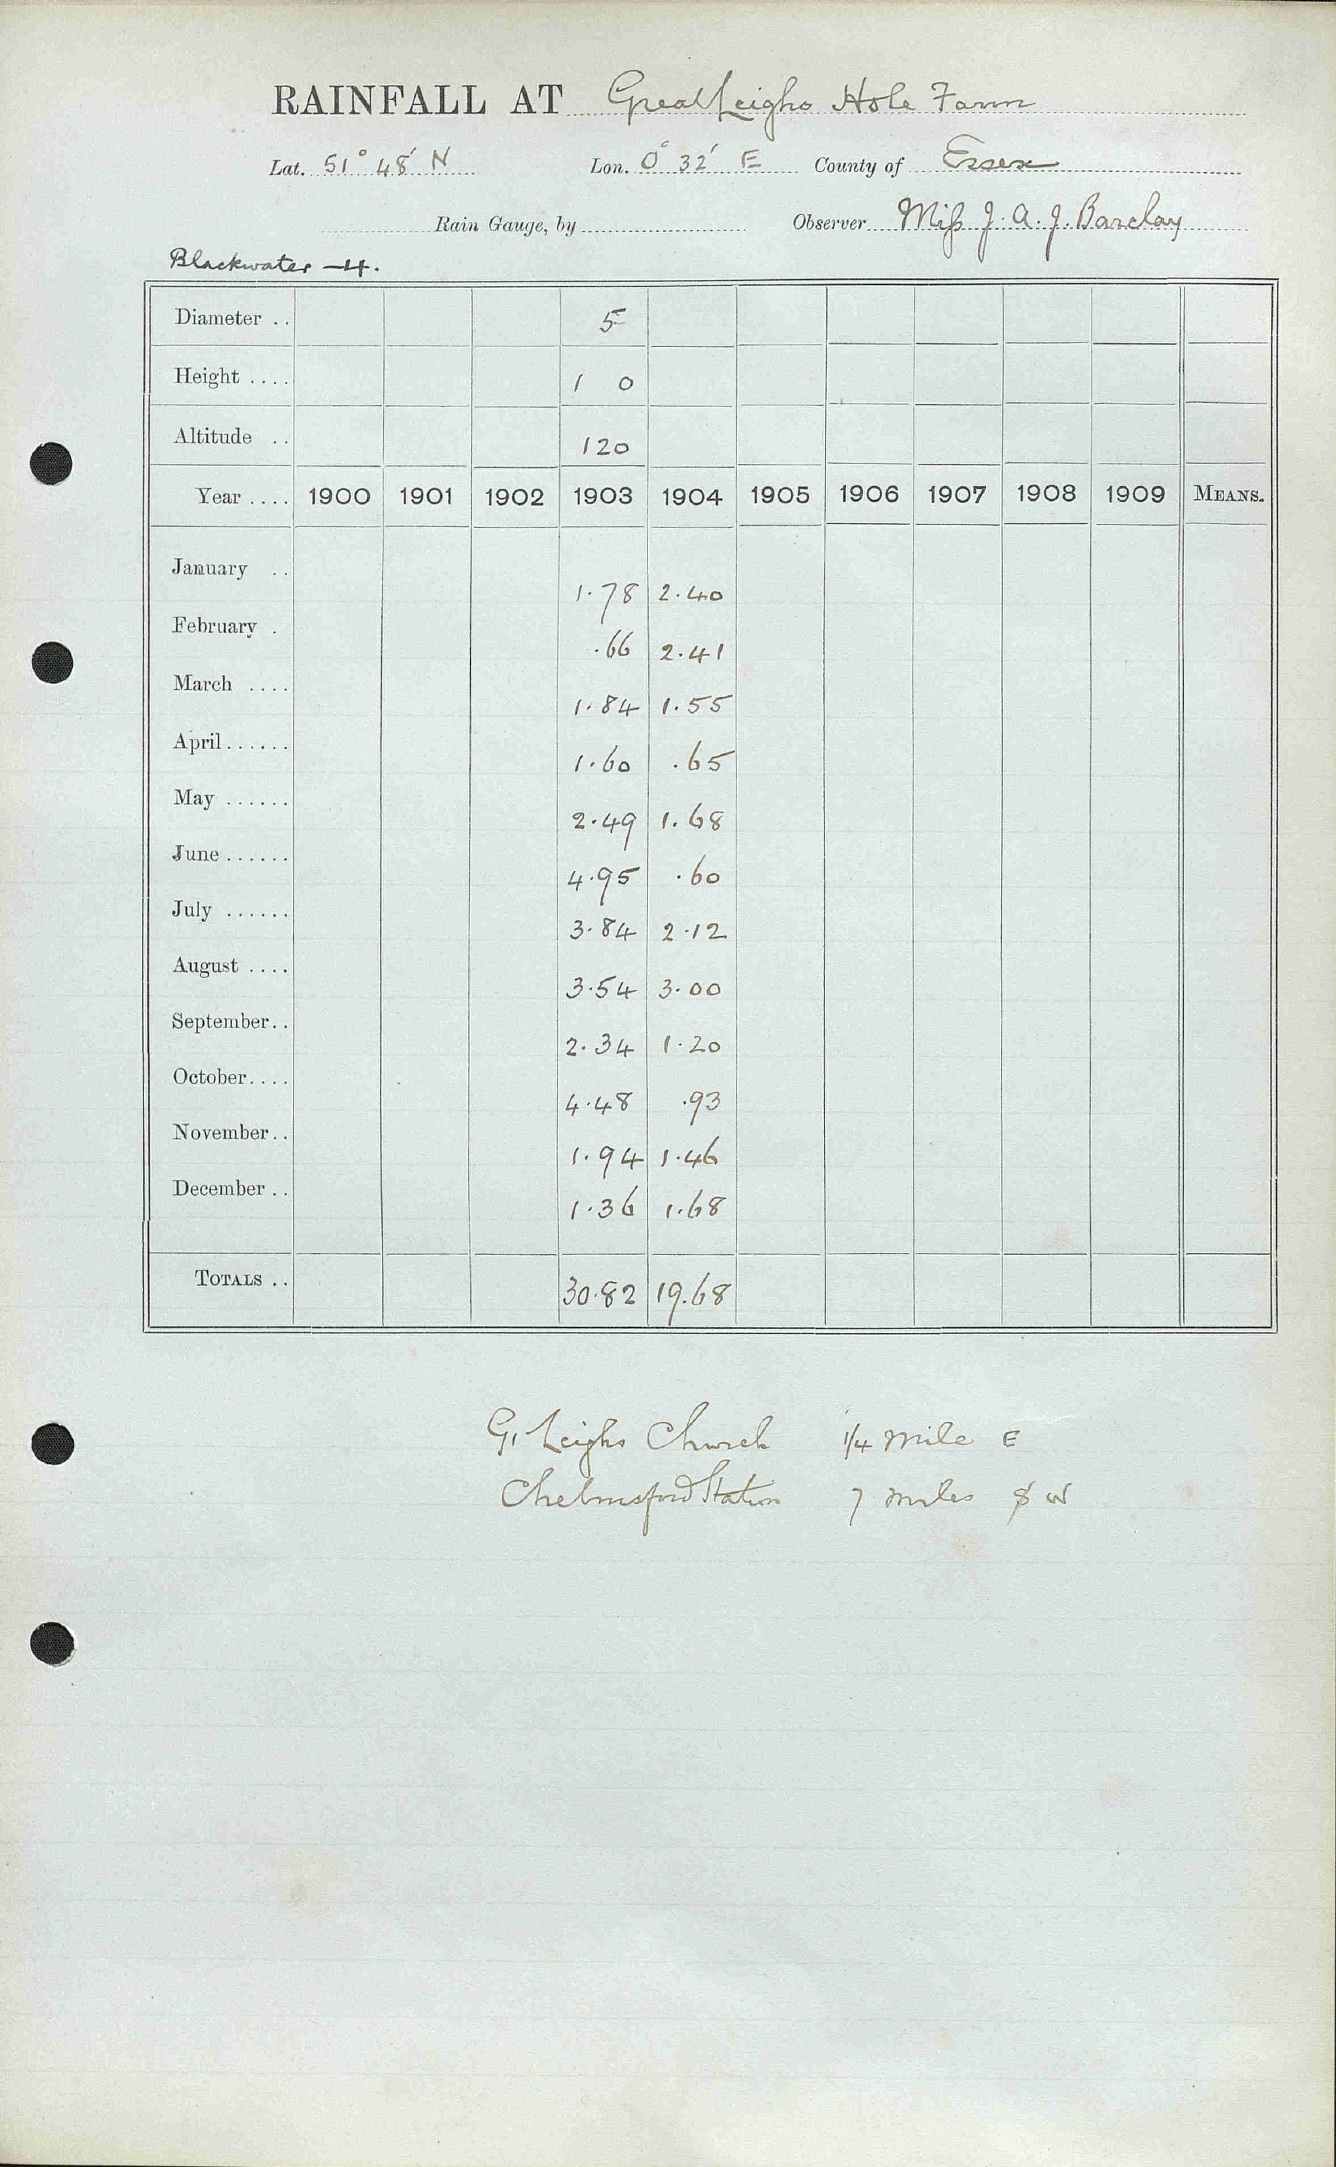 RAINFALL AT Great Leighs Hole Farm
Lat. 51° 48' N Lon. 0° 32' E County of Essex
Rain Gauge, by Observer Miss J. A. J. Barclay
Blackwater —4.
Diameter .. 5
Height .... 1 0
Altitude .. 120
Year .... 1900 1901 1902 1903 1904 1905 1906 1907 1908 1909 MEANS.
January .. 1.78 2.40
February . .66 2.41
March .... 1.84 1.55
April...... 1.60 .65
May ...... 2.49 1.68
June...... 4.95 .60
July ...... 3.84 2.12
August .... 3.54 3.00
September.. 2.34 1.20
October.... 4.48 .93
November.. 1.94 1.46
December .. 1.36 1.68
TOTALS .. 30.82 19.68
Gt Leighs Church 1/4 mile E
Chelmsford Station 7 miles S W